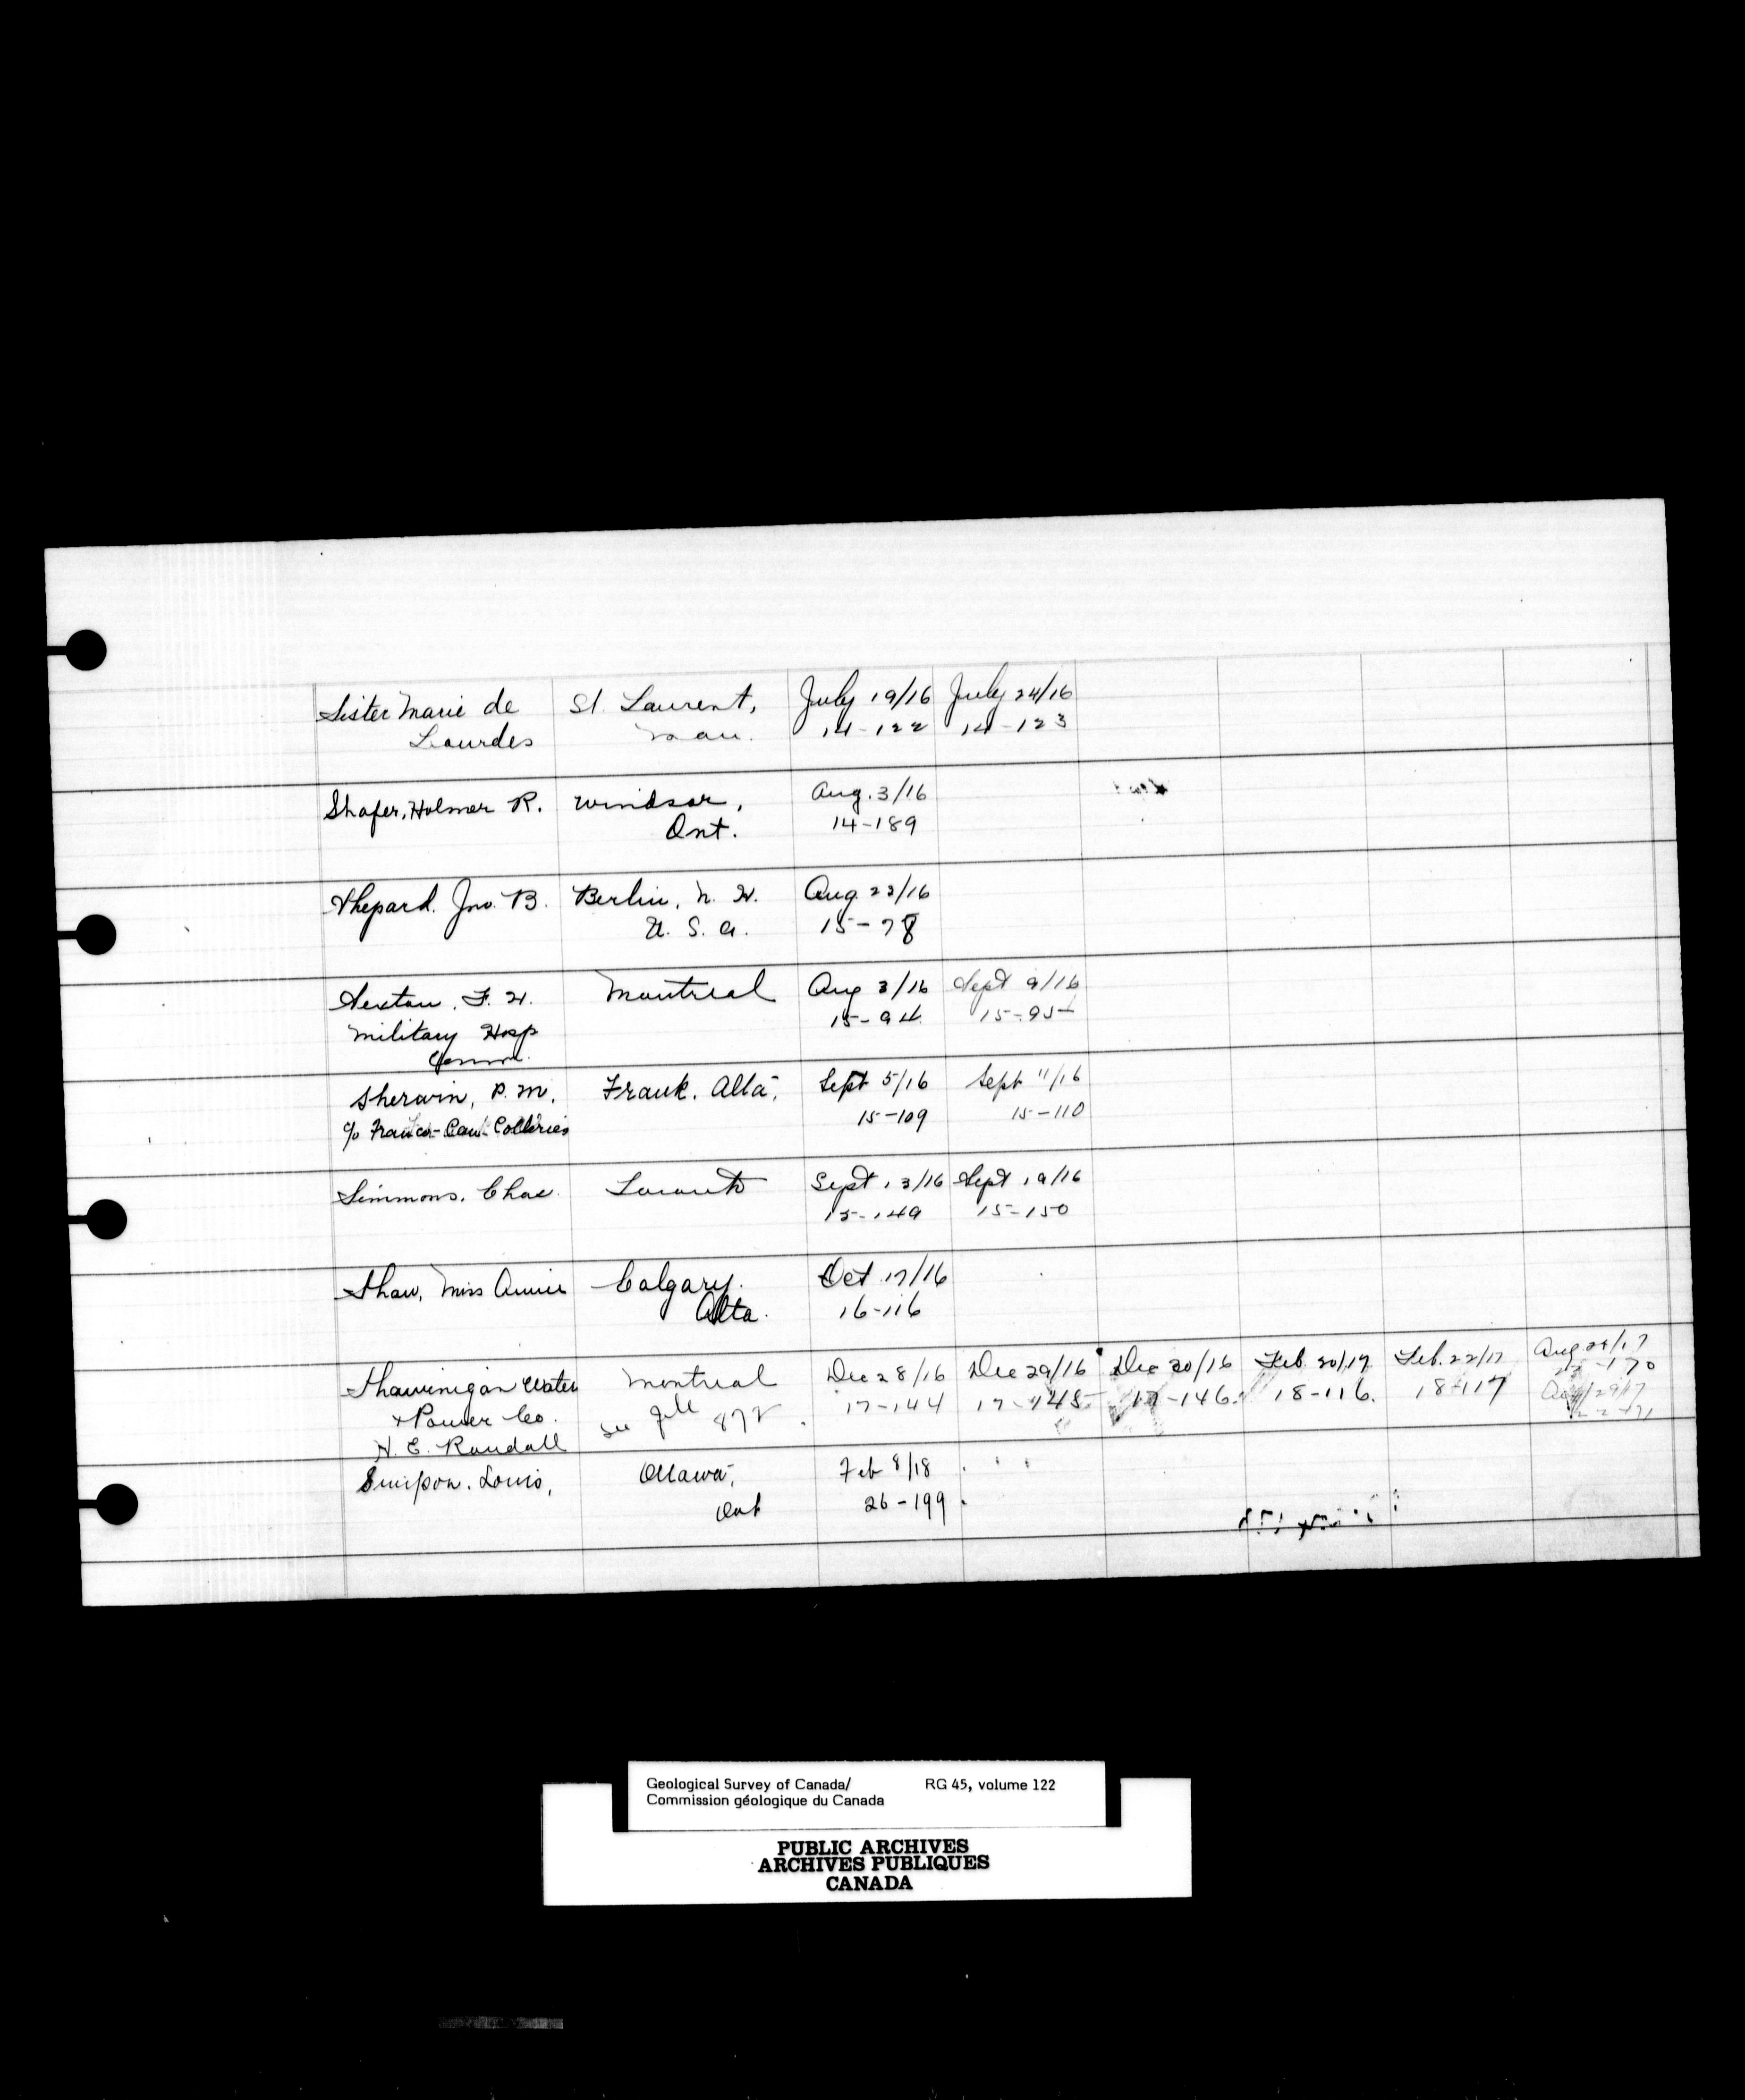 Sister Marie de St. Laurent, July 19/16 July 24/16
Lourdes Man. 14-122 14-123
Shafer, Holmer R. Windsor, Aug. 3/16
Ont. 14-189
Shepard. Jno. B. Berlin, N. H. Aug. 22/16
U. S. A. 15-78
Sexton, F. H. Montreal Aug 3/16 Sept 9/16
Military Hosp 15-94 15-95
Comm.
Sherwin, P. M. Frank. Alta. Sept 5/16 Sept 11/16
c/o Franco-Can. Collieries 15-109 15-110
Simmons, Chas. Toronto Sept 13/16 Sept 19/16
15-149 15-150
Shaw, Miss Annie Calgary. Oct 17/16
Alta. 16-116
Shawinigan Water Montreal Dec 28/16 Dec 29/16 Dec 30/16 Feb. 20/17 Feb. 22/17 Aug 28/17
+ Power Co. see 872 17-144 17-145 17-146. 18-116. 18-117 -170
H. E. Randall
Simpson. Louis, Ottawa, Feb 8/18
Ont 26-199
Geological Survey of Canada/ RG 45, volume 122
Commission géologique du Canada
PUBLIC ARCHIVES
ARCHIVES PUBLIQUES
CANADA